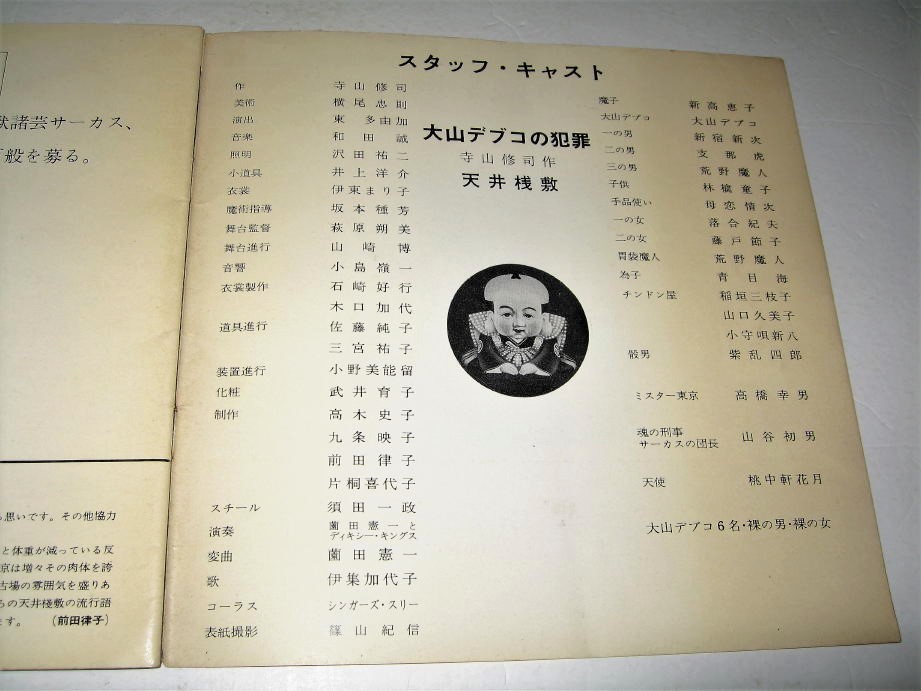 獣諸芸サーカス、
般を募る。
思いです。その他協力
と体重が減っている反
京は増々その肉体を誇
古場の雰囲気を盛りあ
らの天井桟敷の流行語
ます。 (前田律子)
スタッフ・キャスト
作 寺山修司
美術 横尾忠則
演出 東多由加
音楽 和田誠
照明 沢田祐二
小道具 井上洋介
衣裳 伊東まり子
魔術指導 坂本種芳
舞台監督 萩原朔美
舞台進行 山崎博
音響 小島嶺一
衣裳製作 石崎好行
木口加代
道具進行 佐藤純子
三宮祐子
装置進行 小野美能留
化粧 武井育子
制作 高木史子
九条映子
前田律子
片桐喜代子
スチール 須田一政
演奏 薗田憲一と
ディキシー・キングス
変曲 薗田憲一
歌 伊集加代子
コーラス シンガーズ・スリー
表紙撮影 篠山紀信
大山デブコの犯罪
寺山修司作
天井桟敷
魔子 新高恵子
大山デブコ 大山デブコ
一の男 新宿新次
二の男 支那虎
三の男 荒野魔人
子供 林檎童子
手品使い 母恋情次
一の女 落合紀夫
二の女 藤戸節子
胃袋魔人 荒野魔人
為子 青目海
チンドン屋 稲垣三枝子
山口久美子
小守唄新八
骰男 紫乱四郎
ミスター東京 高橋幸男
魂の刑事
サーカスの団長 山谷初男
天使 桃中軒花月
大山デブコ6名・裸の男・裸の女